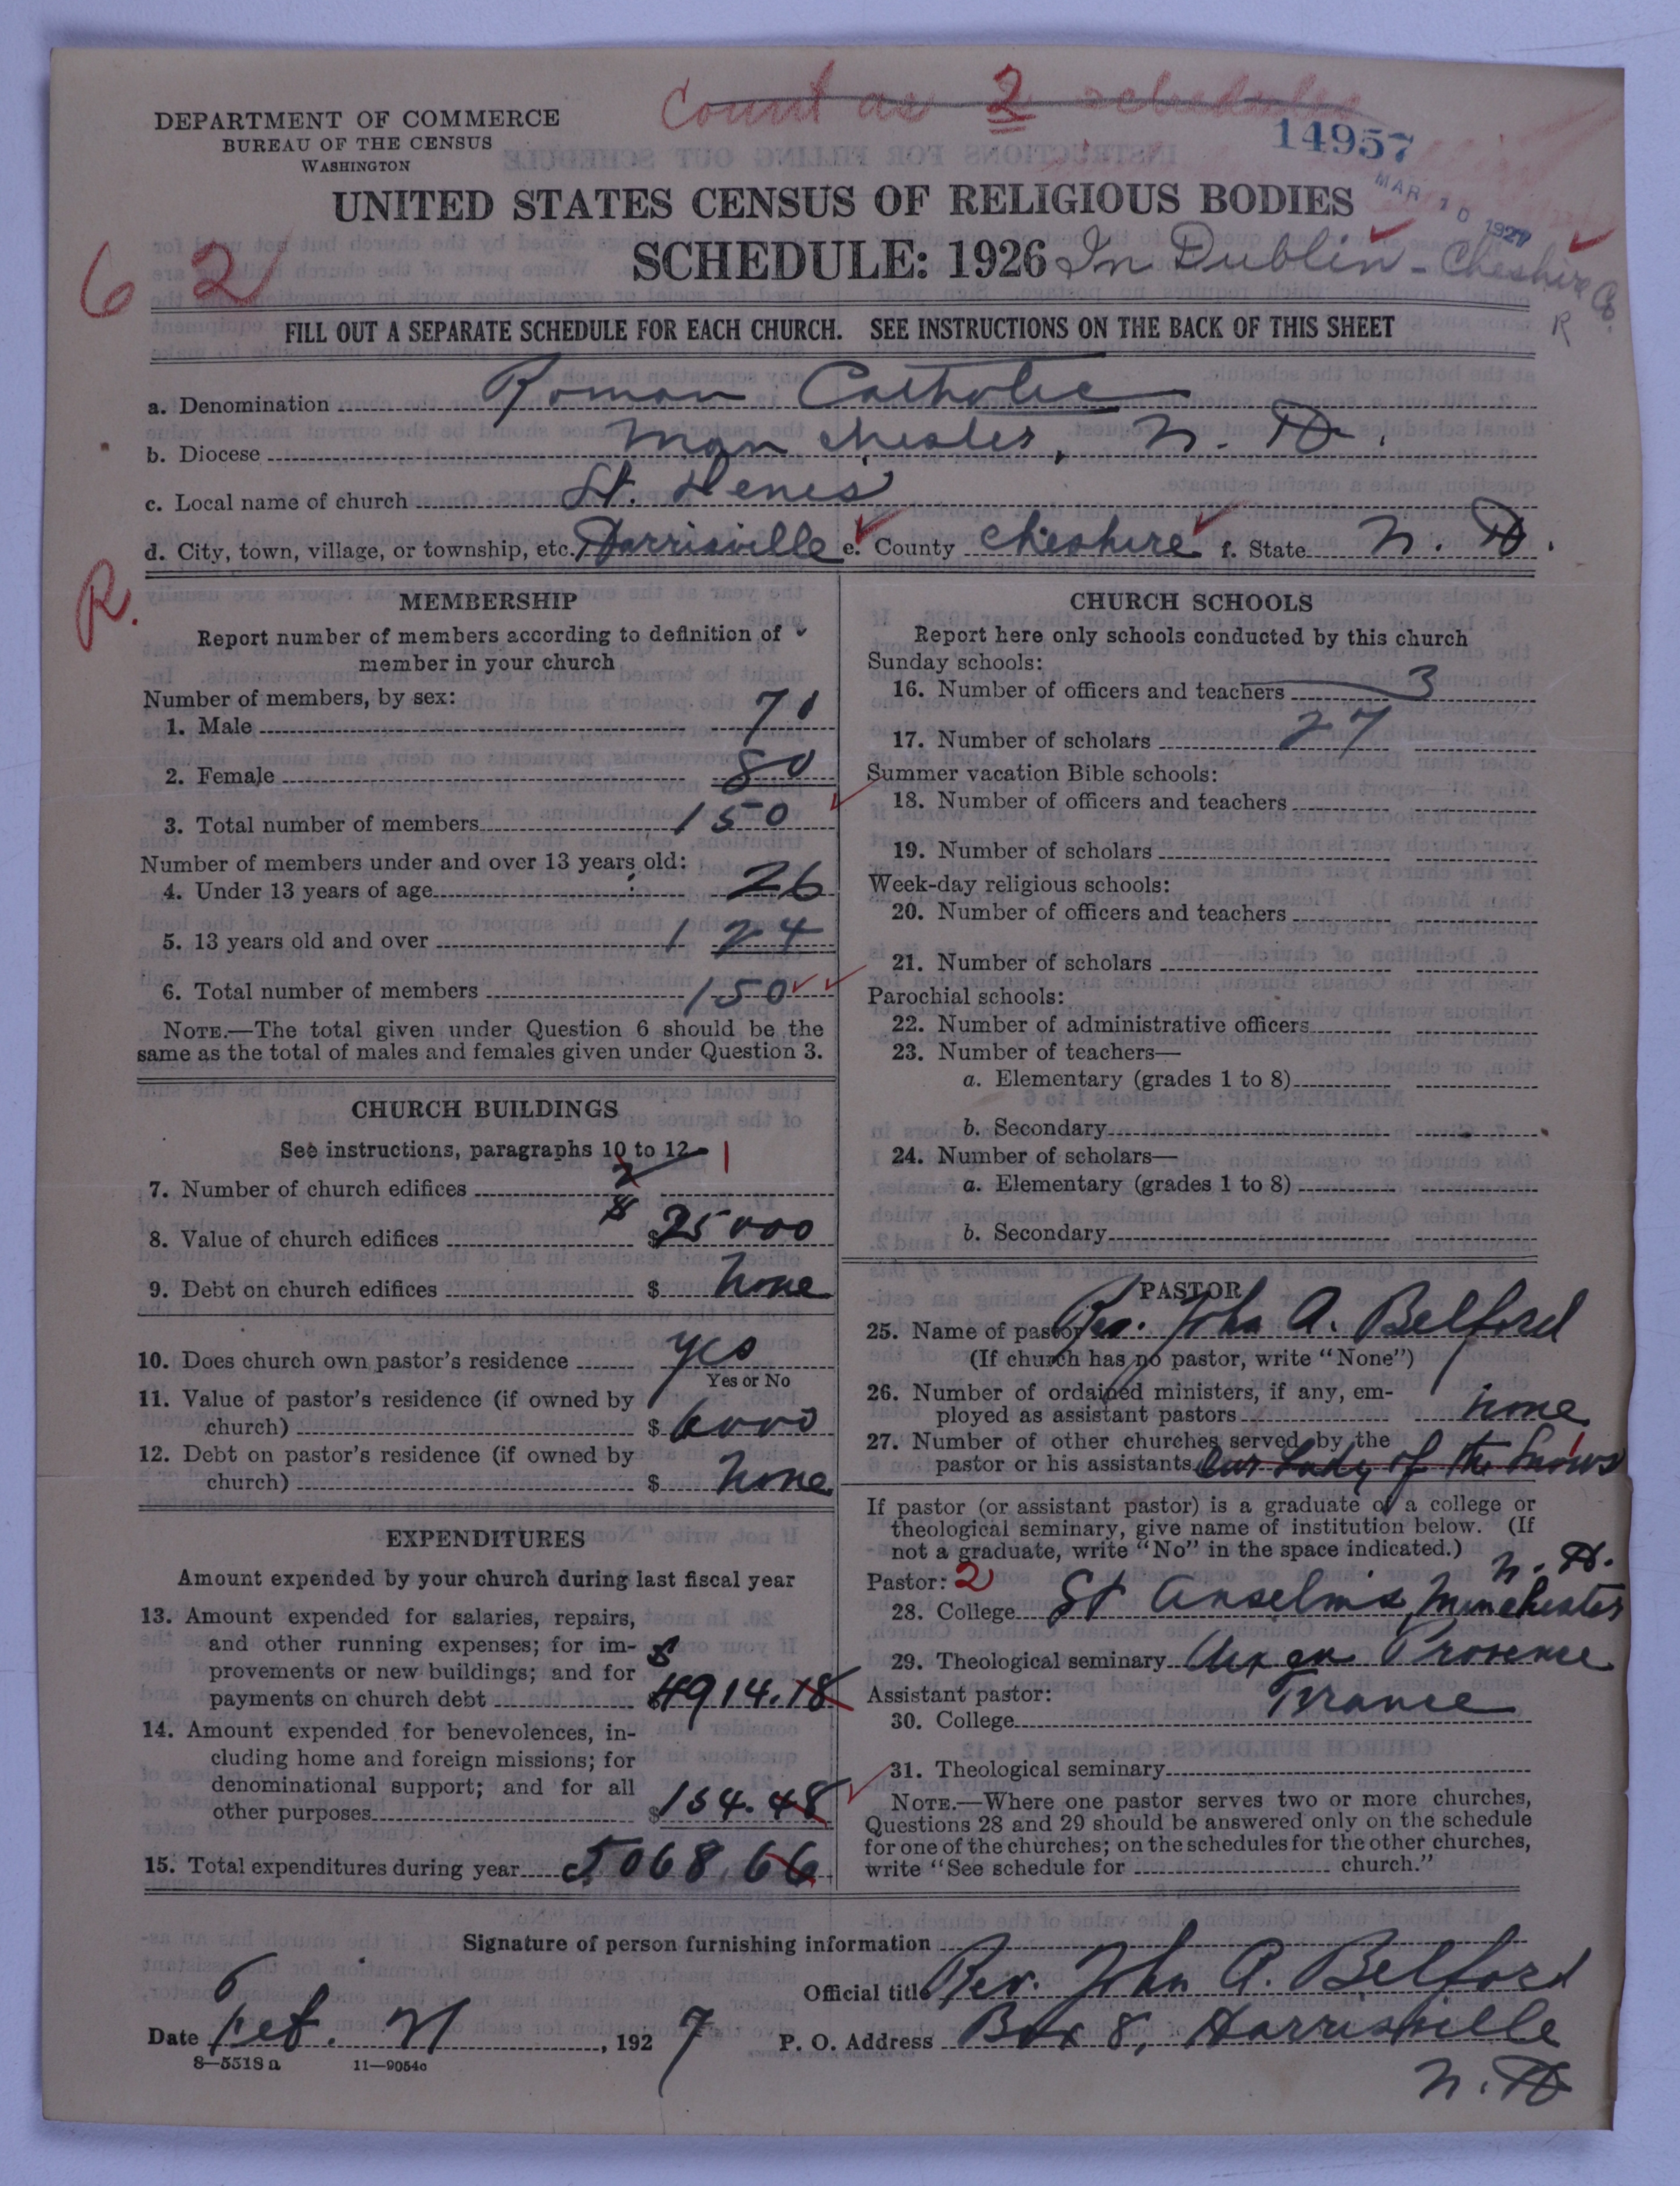 Count as 2 schedules
DEPARTMENT OF COMMERCE
BUREAU OF THE CENSUS
WASHINGTON
14957
MAR 10 1927
UNITED STATES CENSUS OF RELIGIOUS BODIES
SCHEDULE: 1926 In Dublin - Cheshire Co.
R
62
FILL OUT A SEPARATE SCHEDULE FOR EACH CHURCH. SEE INSTRUCTIONS ON THE BACK OF THIS SHEET
a. Denomination Roman Catholic
b. Diocese Manchester, N. H.
c. Local name of church St. Denis
d. City, town, village, or township, etc. Harrisville e. County Cheshire f. State N. H.
R.
MEMBERSHIP
Report number of members according to definition of
member in your church
Number of members, by sex:
1. Male 70
2. Female 80
3. Total number of members 150
Number of members under and over 13 years old:
4. Under 13 years of age 26
5. 13 years old and over 124
6. Total number of members 150
NOTE.—The total given under Question 6 should be the
same as the total of males and females given under Question 3.
CHURCH BUILDINGS
See instructions, paragraphs 10 to 12
7. Number of church edifices 2 1
8. Value of church edifices $ 25000
9. Debt on church edifices $ none
10. Does church own pastor's residence yes
Yes or No
11. Value of pastor's residence (if owned by
church) $ 6000
12. Debt on pastor's residence (if owned by
church) $ none
EXPENDITURES
Amount expended by your church during last fiscal year
13. Amount expended for salaries, repairs,
and other running expenses; for im-
provements or new buildings; and for
payments on church debt $ 4914.18
14. Amount expended for benevolences, in-
cluding home and foreign missions; for
denominational support; and for all
other purposes $ 154.48
15. Total expenditures during year 5068.66
CHURCH SCHOOLS
Report here only schools conducted by this church
Sunday schools:
16. Number of officers and teachers 3
17. Number of scholars 27
Summer vacation Bible schools:
18. Number of officers and teachers
19. Number of scholars
Week-day religious schools:
20. Number of officers and teachers
21. Number of scholars
Parochial schools:
22. Number of administrative officers
23. Number of teachers—
a. Elementary (grades 1 to 8)
b. Secondary
24. Number of scholars—
a. Elementary (grades 1 to 8)
b. Secondary
PASTOR
25. Name of pastor Rev. John A. Belford
(If church has no pastor, write "None")
26. Number of ordained ministers, if any, em-
ployed as assistant pastors none
27. Number of other churches served by the
pastor or his assistants Our Lady of the Snows 1
If pastor (or assistant pastor) is a graduate of a college or
theological seminary, give name of institution below. (If
not a graduate, write "No" in the space indicated.)
Pastor: 2
28. College St Anselm's, Manchester N. H.
29. Theological seminary Aix en Provence
France
Assistant pastor:
30. College
31. Theological seminary
NOTE.—Where one pastor serves two or more churches,
Questions 28 and 29 should be answered only on the schedule
for one of the churches; on the schedules for the other churches,
write "See schedule for church."
Signature of person furnishing information
Official title Rev. John A. Belford
Date Feb. 21, 1927 P. O. Address Box 8, Harrisville
N. H.
8—5518 a 11—9054c